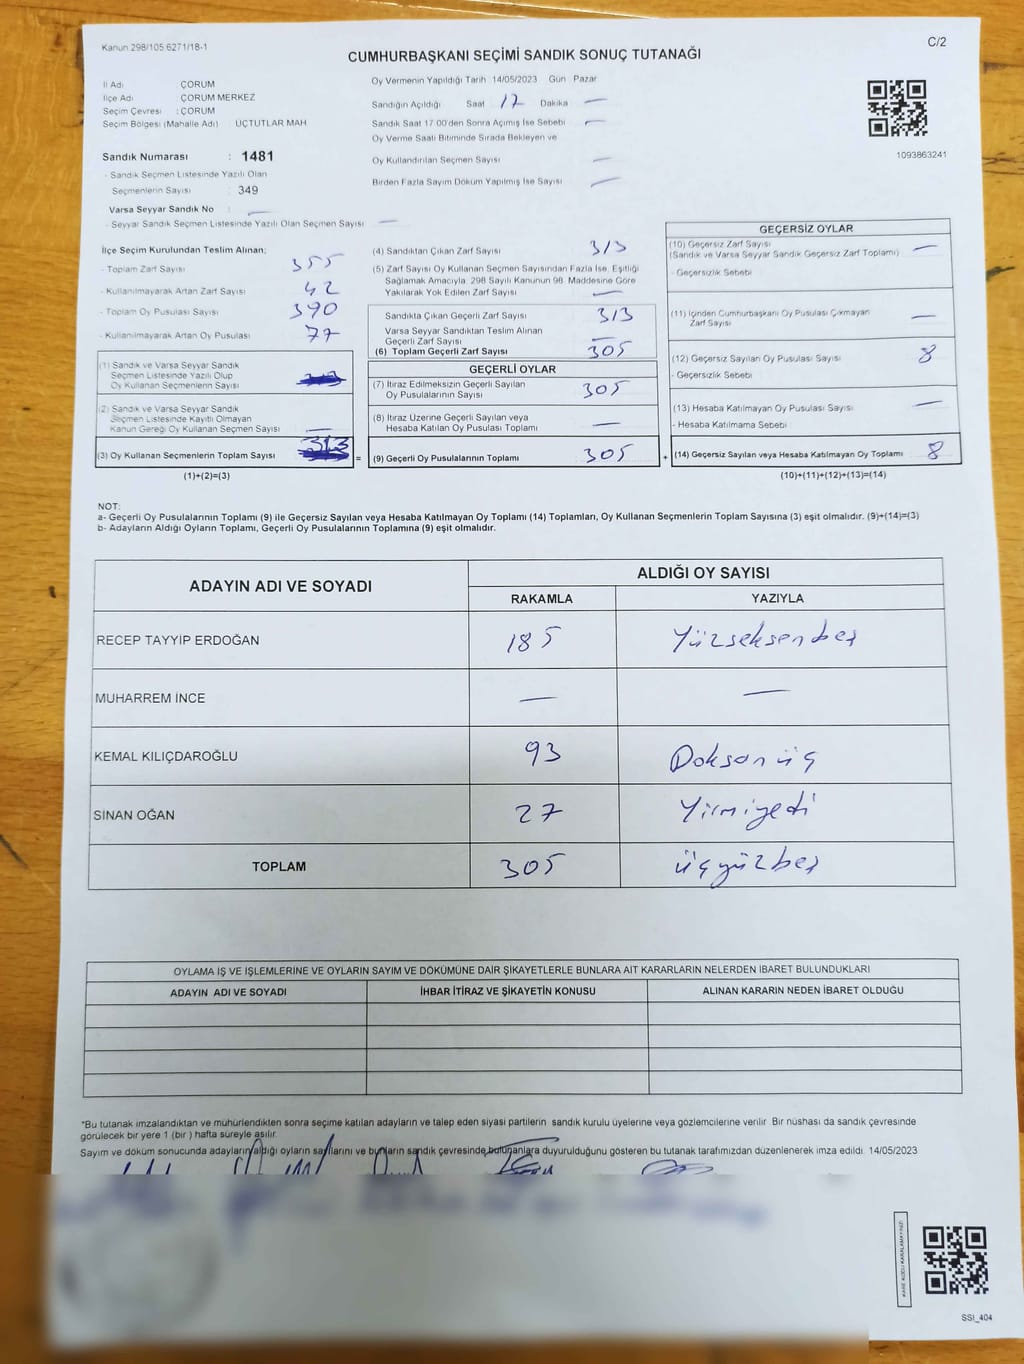 Kanun 298/105 6271/18-1
C/2
CUMHURBAŞKANI SEÇİMİ SANDIK SONUÇ TUTANAĞI
İl Adı ÇORUM
İlçe Adı ÇORUM MERKEZ
Seçim Çevresi : ÇORUM
Seçim Bölgesi (Mahalle Adı) : ÜÇTUTLAR MAH
Sandık Numarası : 1481
- Sandık Seçmen Listesinde Yazılı Olan
Seçmenlerin Sayısı : 349
Varsa Seyyar Sandık No : —
- Seyyar Sandık Seçmen Listesinde Yazılı Olan Seçmen Sayısı —
Oy Vermenin Yapıldığı Tarih 14/05/2023 Gün Pazar
Sandığın Açıldığı Saat 17 Dakika —
Sandık Saat 17.00'den Sonra Açımış İse Sebebi —
Oy Verme Saati Bitiminde Sırada Bekleyen ve
Oy Kullandırılan Seçmen Sayısı —
Birden Fazla Sayım Döküm Yapılmış İse Sayısı —
1093863241
İlçe Seçim Kurulundan Teslim Alınan;
- Toplam Zarf Sayısı 355
- Kullanılmayarak Artan Zarf Sayısı 42
- Toplam Oy Pusulası Sayısı 390
- Kullanılmayarak Artan Oy Pusulası 77
(1) Sandık ve Varsa Seyyar Sandık
Seçmen Listesinde Yazılı Olup
Oy Kullanan Seçmenlerin Sayısı
(2) Sandık ve Varsa Seyyar Sandık
Seçmen Listesinde Kayıtlı Olmayan
Kanun Gereği Oy Kullanan Seçmen Sayısı —
(3) Oy Kullanan Seçmenlerin Toplam Sayısı 313
(1)+(2)=(3)
(4) Sandıktan Çıkan Zarf Sayısı 313
(5) Zarf Sayısı Oy Kullanan Seçmen Sayısından Fazla İse, Eşitliği
Sağlamak Amacıyla; 298 Sayılı Kanunun 98. Maddesine Göre
Yakılarak Yok Edilen Zarf Sayısı —
Sandıkta Çıkan Geçerli Zarf Sayısı 313
Varsa Seyyar Sandıktan Teslim Alınan
Geçerli Zarf Sayısı —
(6) Toplam Geçerli Zarf Sayısı 305
GEÇERLİ OYLAR
(7) İtiraz Edilmeksizin Geçerli Sayılan
Oy Pusulalarının Sayısı 305
(8) İtiraz Üzerine Geçerli Sayılan veya
Hesaba Katılan Oy Pusulası Toplamı —
= (9) Geçerli Oy Pusulalarının Toplamı 305
GEÇERSİZ OYLAR
(10) Geçersiz Zarf Sayısı —
(Sandık ve Varsa Seyyar Sandık Geçersiz Zarf Toplamı)
- Geçersizlik Sebebi
(11) İçinden Cumhurbaşkanı Oy Pusulası Çıkmayan
Zarf Sayısı —
(12) Geçersiz Sayılan Oy Pusulası Sayısı 8
- Geçersizlik Sebebi
(13) Hesaba Katılmayan Oy Pusulası Sayısı —
- Hesaba Katılmama Sebebi
+ (14) Geçersiz Sayılan veya Hesaba Katılmayan Oy Toplamı 8
(10)+(11)+(12)+(13)=(14)
NOT:
a- Geçerli Oy Pusulalarının Toplamı (9) ile Geçersiz Sayılan veya Hesaba Katılmayan Oy Toplamı (14) Toplamları, Oy Kullanan Seçmenlerin Toplam Sayısına (3) eşit olmalıdır. (9)+(14)=(3)
b- Adayların Aldığı Oyların Toplamı, Geçerli Oy Pusulalarının Toplamına (9) eşit olmalıdır.
ADAYIN ADI VE SOYADI ALDIĞI OY SAYISI
RAKAMLA YAZIYLA
RECEP TAYYİP ERDOĞAN 185 Yüzseksenbeş
MUHARREM İNCE — —
KEMAL KILIÇDAROĞLU 93 Doksanüç
SİNAN OĞAN 27 Yirmiyedi
TOPLAM 305 üçyüzbeş
OYLAMA İŞ VE İŞLEMLERİNE VE OYLARIN SAYIM VE DÖKÜMÜNE DAİR ŞİKAYETLERLE BUNLARA AİT KARARLARIN NELERDEN İBARET BULUNDUKLARI
ADAYIN ADI VE SOYADI İHBAR İTİRAZ VE ŞİKAYETİN KONUSU ALINAN KARARIN NEDEN İBARET OLDUĞU
*Bu tutanak imzalandıktan ve mühürlendikten sonra seçime katılan adayların ve talep eden siyasi partilerin sandık kurulu üyelerine veya gözlemcilerine verilir. Bir nüshası da sandık çevresinde
görülecek bir yere 1 (bir ) hafta süreyle asılır.
Sayım ve döküm sonucunda adayların aldığı oyların sayılarını ve bunların sandık çevresinde bulunanlara duyurulduğunu gösteren bu tutanak tarafımızdan düzenlenerek imza edildi. 14/05/2023
KARE KODU KARALAMAYINIZ!
SSİ_404